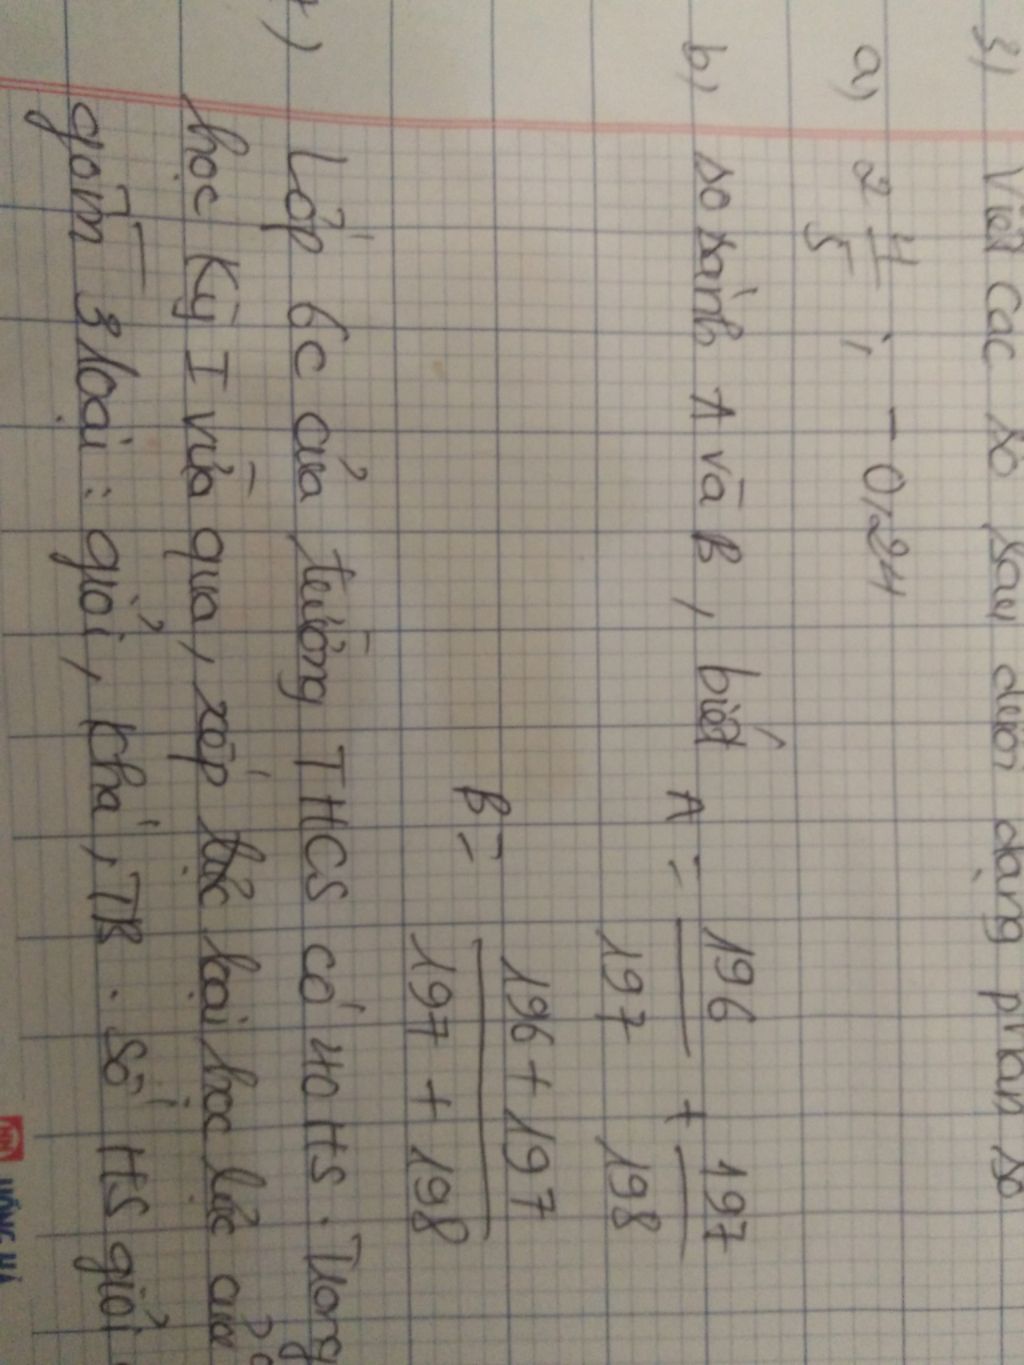 3) Viết các số sau dưới dạng phân số
a) 2 4/5 ; - 0,24
b) so sánh A và B, biết A = 196/197 + 197/198
B = 196 + 197 / 197 + 198
) Lớp 6c của trường THCS có 40 HS. Trong
học Kỳ I vừa qua, xếp loại học lực của
gồm 3 loại : giỏi, khá, TB. Số HS giỏi
HỒNG HÀ